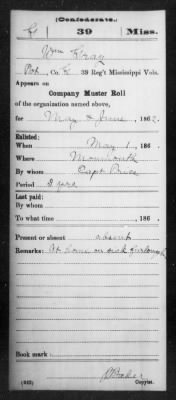 (Confederate.)
K 39 Miss.
Wm Gray
Pvt, Co. K, 39 Reg't Mississippi Vols.
Appears on
Company Muster Roll
of the organization named above,
for May & June, 1862.
Enlisted:
When May 1, 186 .
Where Monmouth
By whom Capt
Period 3 yrs
Last paid:
By whom
To what time , 186 .
Present or absent absent
Remarks: At home on sick furlough
Book mark:
(642) Baker
Copyist.